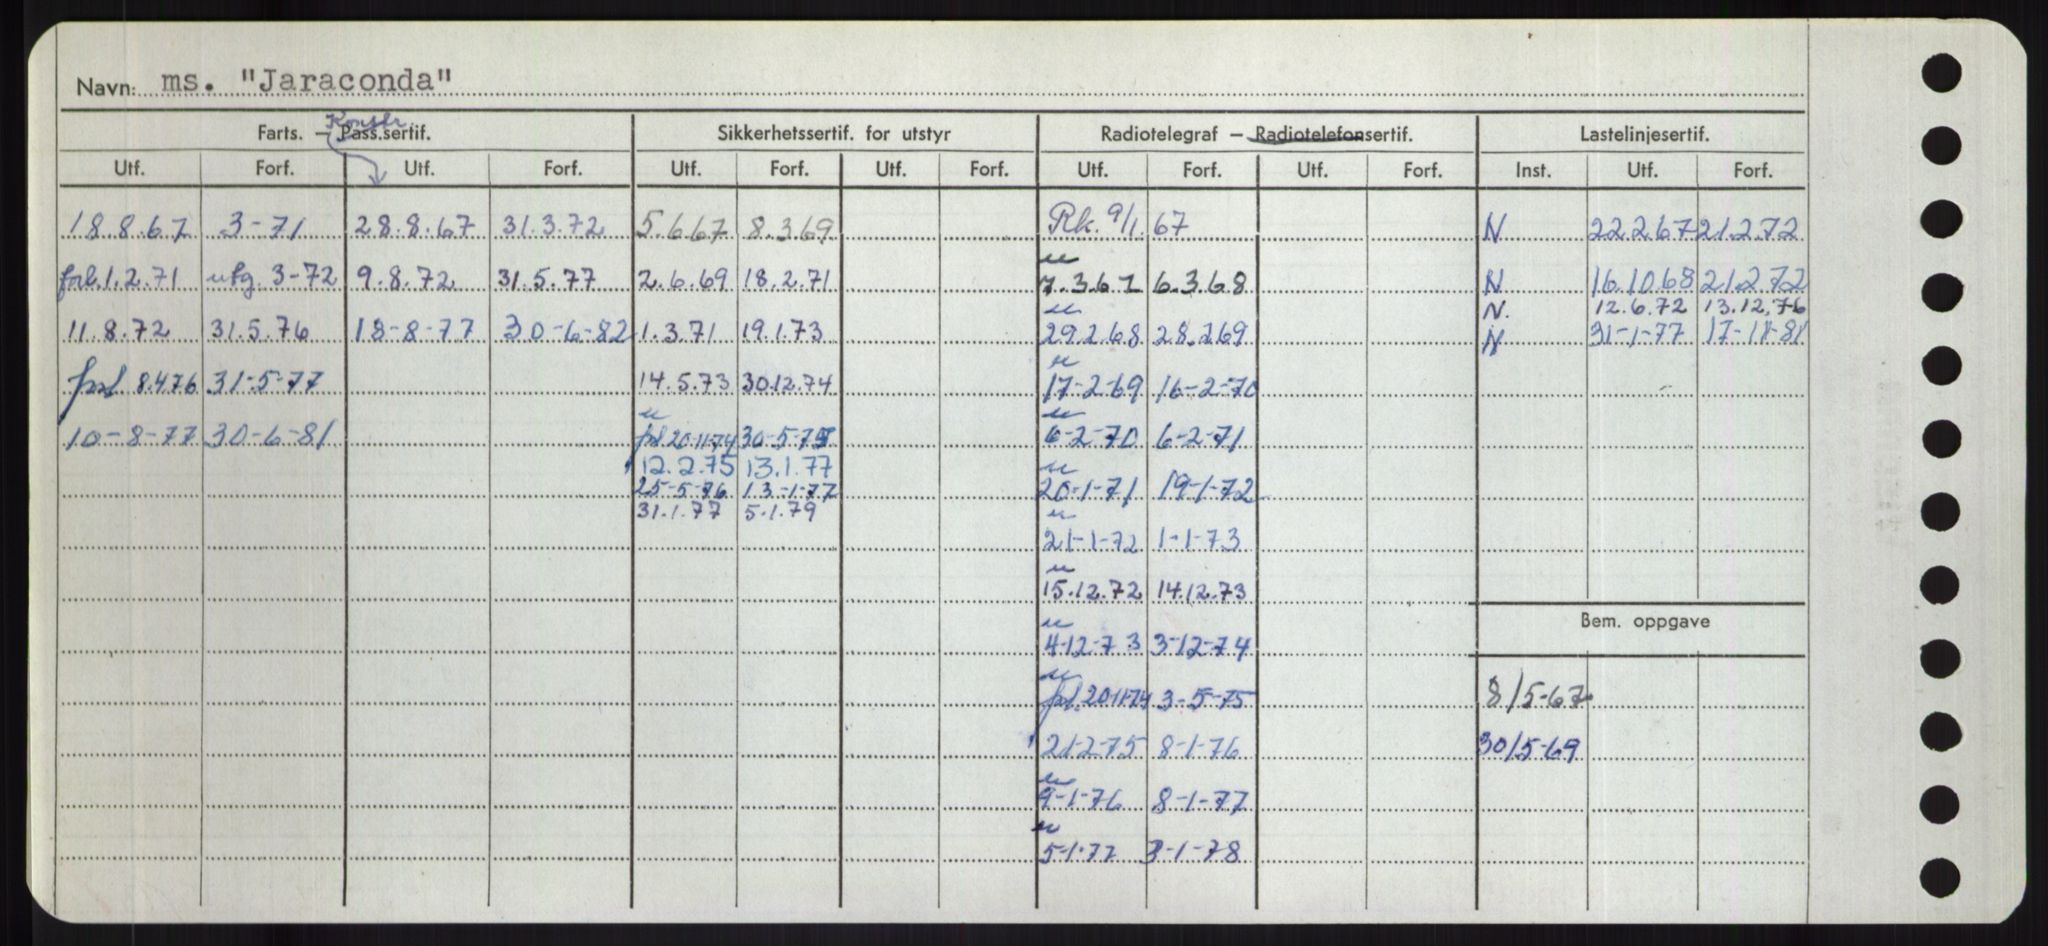 Navn: ms. "Jaraconda"
Konstr.
Farts. — Pass.sertif. Sikkerhetssertif. for utstyr Radiotelegraf — Radiotelefonsertif. Lastelinjesertif.
Utf. Forf. Utf. Forf. Utf. Forf. Utf. Forf. Utf. Forf. Utf. Forf. Inst. Utf. Forf.
18.8.67 3-71 28.8.67 31.3.72 5.6.67 8.3.69 Rk. 9/1.67 N 22.2.67 21.2.72
forl.1.2.71 utg. 3-72 9.8.72 31.5.77 2.6.69 18.2.71 7.3.67 6.3.68 N 16.10.68 21.2.72
N. 12.6.72 13.12.76
11.8.72 31.5.76 18-8-77 30-6-82 1.3.71 19.1.73 29.2.68 28.2.69 N 31-1-77 17-11-81
forl 8.4.76 31-5-77 14.5.73 30.12.74 17-2-69 16-2-70
10-8-77 30-6-81 forl 20-11-74 30-5-75 6-2-70 6-2-71
12.2.75 13.1.77
25-5-76 13-1-77 20-1-71 19-1-72
31.1.77 5.1.79
21-1-72 1-1-73
15.12.72 14.12.73
Bem. oppgave
4-12-73 3-12-74
forl. 20-11-74 3-5-75 8/5-67
21-2-75 8-1-76 30/5-69
9-1-76 8-1-77
5-1-77 3-1-78